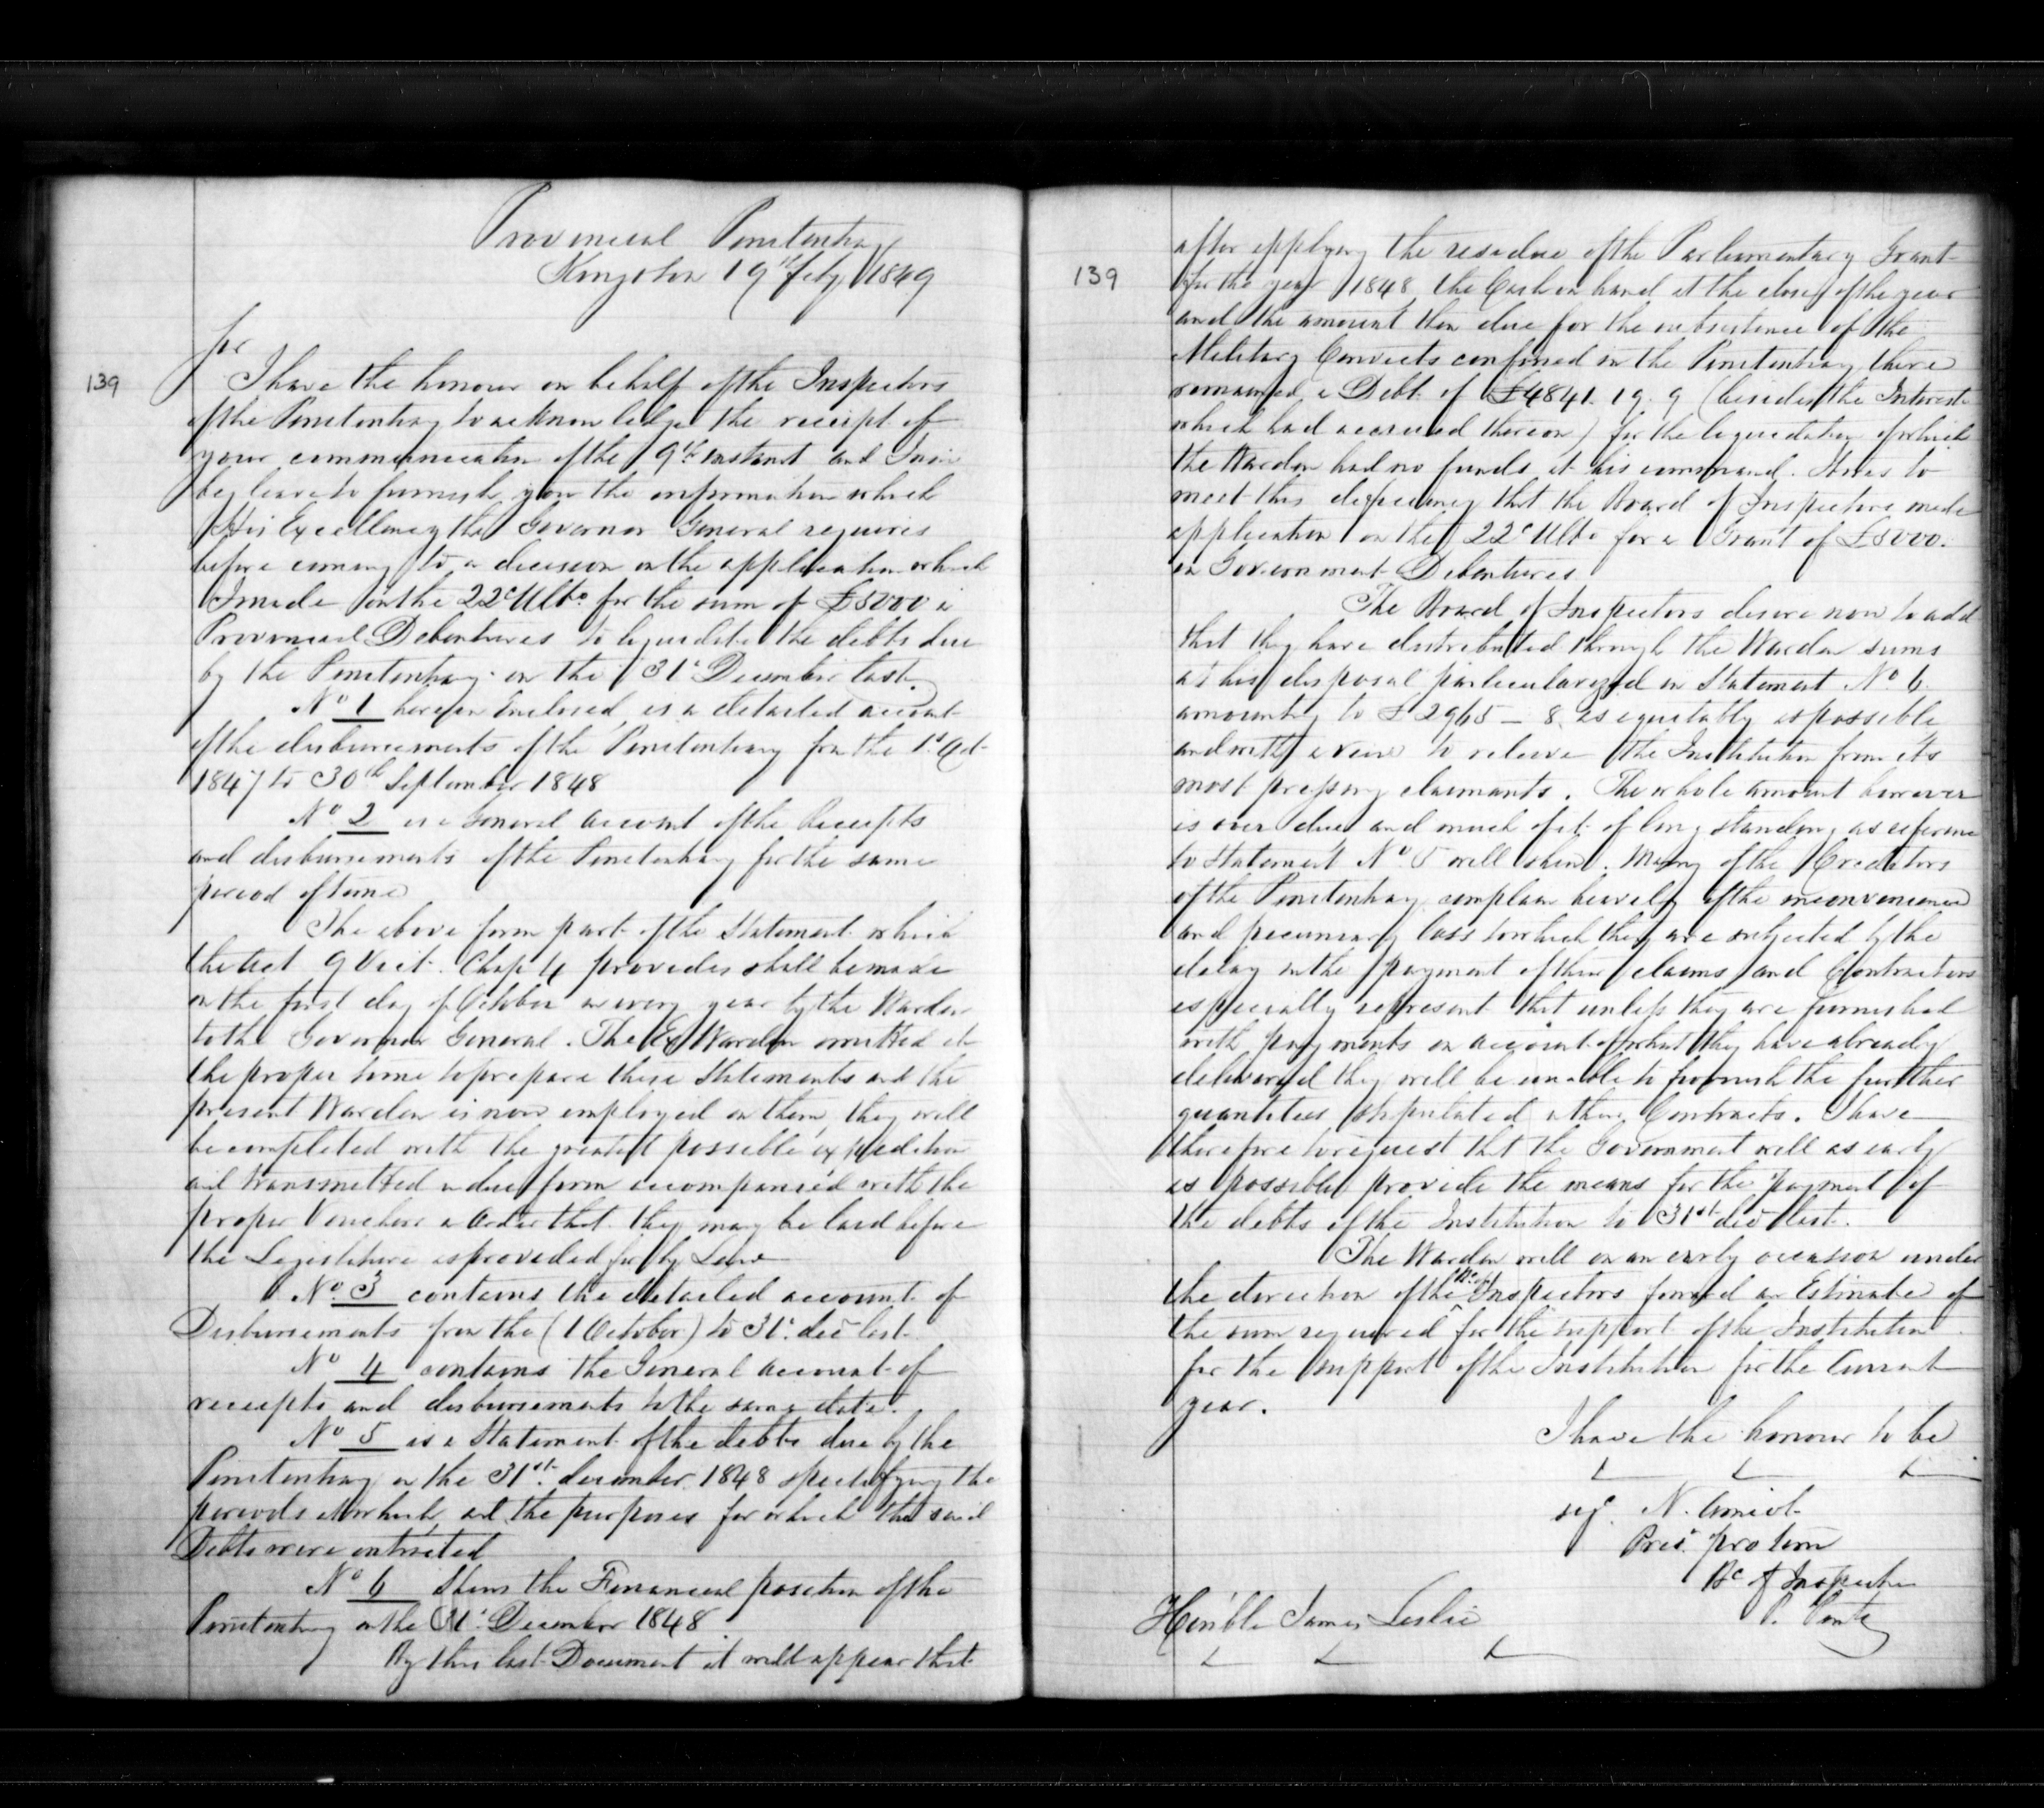 Provincial Penitentiary
Kingston 19th Feby 1849
139
Sir
I have the honour on behalf of the Inspectors
of the Penitentiary to acknowledge the receipt of
your communication of the 9th instant and I now
beg leave to furnish you the information which
His Excellency the Governor General requires
before coming to a decision on the application which
I made on the 22d Ulto for the sum of £5000 in
Provincial Debentures to liquidate the debts due
by the Penitentiary on the 31t December last.
No 1 herein Enclosed is a detailed account
of the disbursements of the Penitentiary from the 1t Oct
1847 to 30th September 1848
No 2 is a General account of the Receipts
and disbursements of the Penitentiary for the same
period of time
The above form part of the Statement which
the Act 9 Vict. Chap 4 provides shall be made
on the first day of October in every year by the Warden
to the Governor General. The Ex Warden omitted at
the proper time to prepare these Statements and the
present Warden is now employed on them, they will
be completed with the greatest possible expedition
and transmitted in due form accompanied with the
proper Vouchers in order that they may be laid before
the Legislature as provided for by Law
No 3 contains the detailed account of
Disbursements from the (1 October) to 31t. dec last
No 4 contains the General Account of
receipts and disbursements to the same date.
No 5 is a Statement of the debts due by the
Penitentiary on the 31st. december 1848 specifying the
periods at which and the purposes for which the said
Debts were contracted
No 6 Shews the Financial position of the
Penitentiary on the 31t December 1848
By this last Document it will appear that
139
after applying the residue of the Parliamentary Grant
for the year 1848, the Cash on hand at the close of the year
and the amount then due for the subsistence of the
Military Convicts confined in the Penitentiary there
remained a Debt of £4841. 19. 9 (besides the Interest
which had accrued thereon) for the liquidation of which
the Warden had no funds at his command. It was to
meet this deficiency that the Board of Inspectors made
application on the 22d Ulto for a Grant of £5000.
in Government Debentures
The Board of Inspectors desire now to add
that they have distributed through the Warden sums
at his disposal particularized in Statement No 6
amounting to £2965 _ 8. as equitably as possible
and with a view to relieve the Institution from its
most pressing claimants. The whole amount however
is over due and much of it of long standing as reference
to Statement No 5 will shew. Many of the Creditors
of the Penitentiary complain heavily of the inconvenience
and pecuniary loss to which they are subjected by the
delay in the payment of their claims and Contractors
especially represent that unless they are furnished
with payments on account of what they have already
delivered they will be unable to furnish the further
quantities stipulated in their Contracts. I have
therefore to request that the Government will as early
as possible provide the means for the payment of
the debts of the Institution to 31st dec last.
The Warden will on an early occasion under
the direction of the Bd of Inspectors forward an Estimate of
the sum required for the support of the Institution
for the support of the Institution for the Current
year.
I have the honour to be
sigd. N. Amiot
Prest. pro tem
Bd of Inspectors
P. Penty
Hon'ble James Leslie